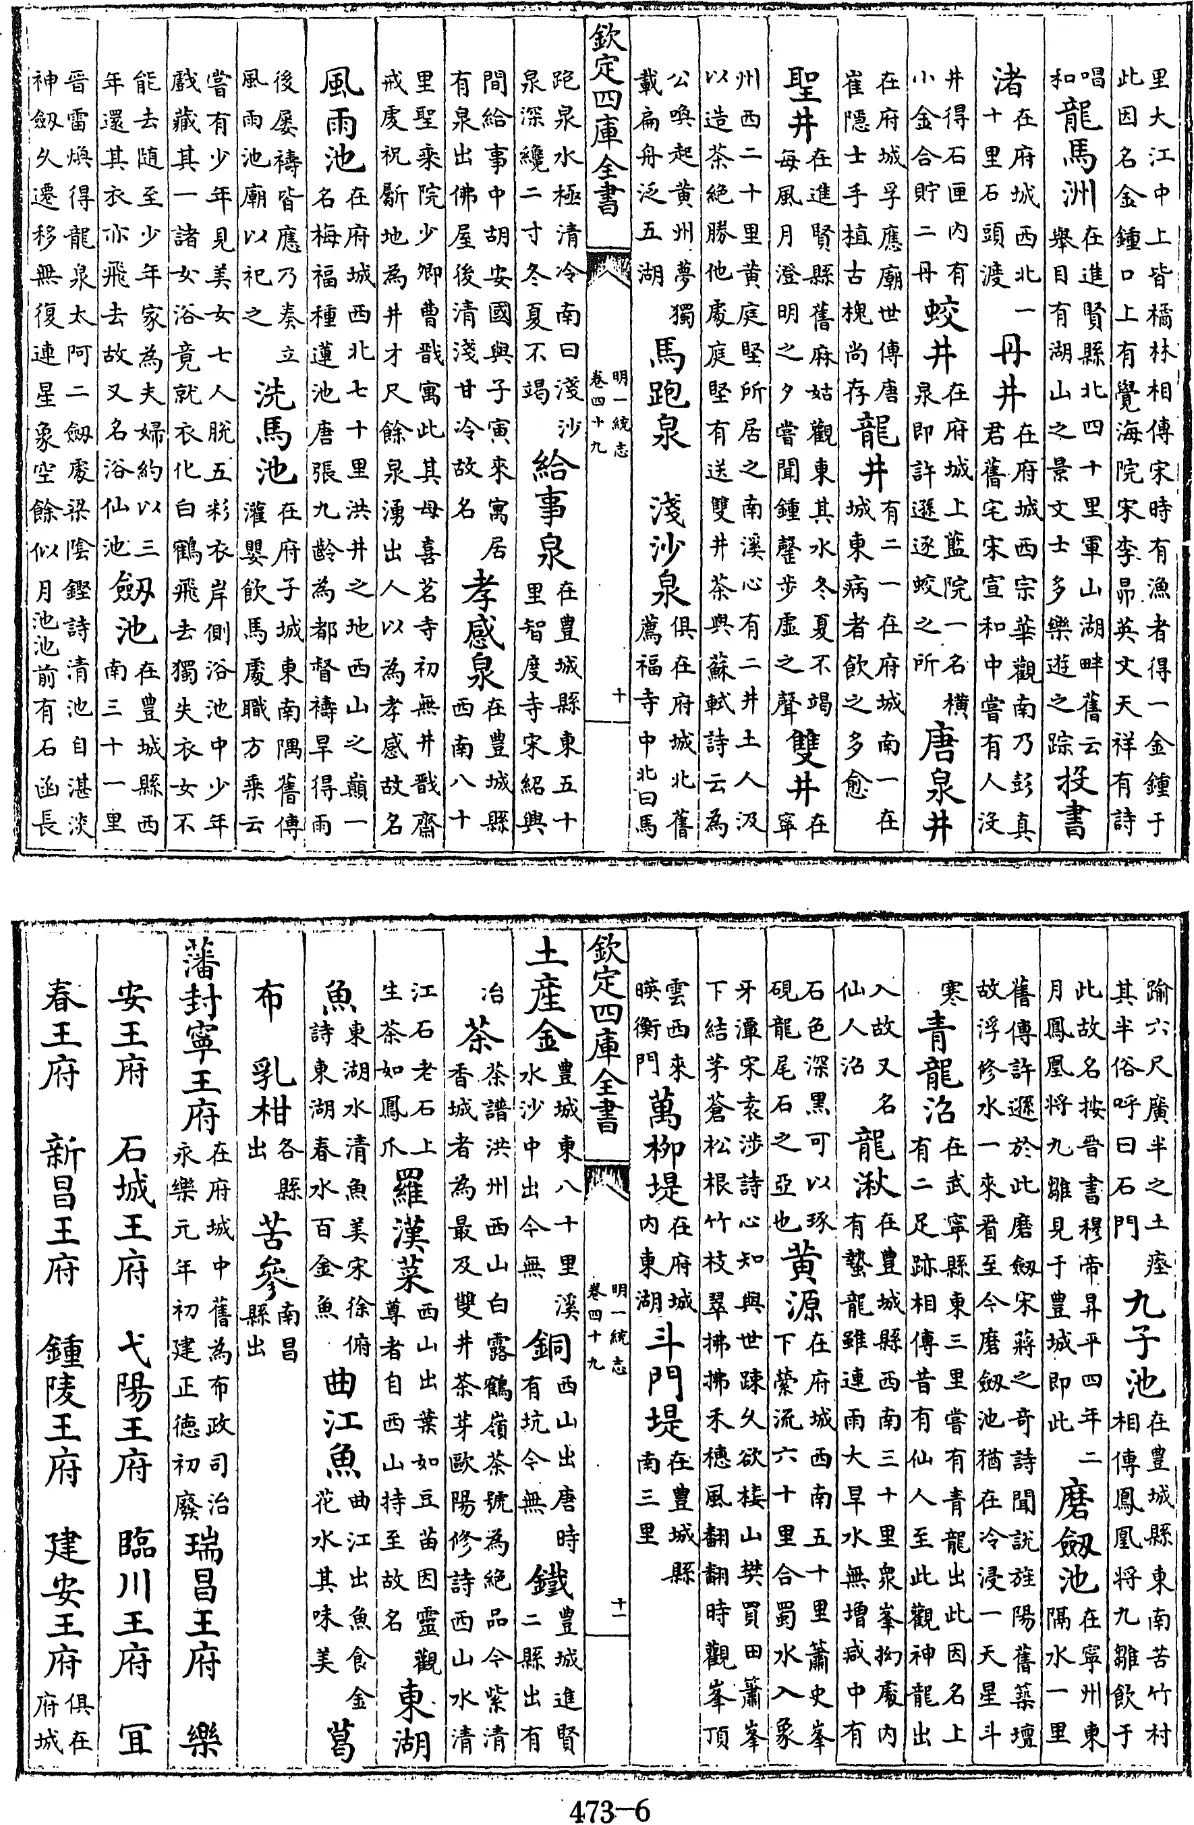 里大江中上皆橘林相傳宋時有漁者得一金鍾于
此因名金鍾口上有覺海院宋李昴英文天祥有詩
唱和龍馬洲在進賢縣北四十里軍山湖畔舊云舉目有湖山之景文士多樂遊之踪投書
渚在府城西北一十里石頭渡丹井在府城西宗華觀南乃彭真君舊宅宋宣和中嘗有人沒
井得石匣内有小金合貯二丹蛟井在府城上藍院一名横泉即許遜逐蛟之所唐泉井
在府城孚應廟世傳唐崔隱士手植古槐尚存龍井有二一在府城南一在城東病者飲之多愈
聖井在進賢縣舊麻姑觀東其水冬夏不竭每風月澄明之夕嘗聞鍾磬步虚之聲雙井在寧
州西二十里黄庭堅所居之南溪心有二井土人汲
以造茶絶勝他處庭堅有送雙井茶與蘇軾詩云為
公喚起黄州夢獨載扁舟泛五湖馬跑泉 淺沙泉俱在府城北舊薦福寺中北曰馬
欽定四庫全書 明一統志 卷四十九 十
跑泉水極清冷南曰淺沙泉深纔二寸冬夏不竭給事泉在豊城縣東五十里智度寺宋紹興
間給事中胡安國與子寅來寓居有泉出佛屋後清淺甘冷故名孝感泉在豊城縣西南八十
里聖乘院少卿曹戩寓此其母喜茗寺初無井戩齋
戒虔祝斸地為井才尺餘泉湧出人以為孝感故名
風雨池在府城西北七十里洪井之地西山之巔一名梅福種蓮池唐張九齡為都督禱旱得雨
後屢禱皆應乃奏立風雨池廟以祀之洗馬池在府子城東南隅舊傳灌嬰飲馬處職方乘云
嘗有少年見美女七人脱五彩衣岸側浴池中少年
戲藏其一諸女浴竟就衣化白鶴飛去獨失衣女不
能去随至少年家為夫婦約以三年還其衣亦飛去故又名浴仙池劔池在豊城縣西南三十一里
晉雷煥得龍泉太阿二劔處梁陰鏗詩清池自湛淡
神劔久遷移無復連星象空餘似月池池前有石函長
踰六尺廣半之土瘞其半俗呼曰石門九子池在豊城縣東南苦竹村相傳鳳凰將九雛飲于
此故名按晉書穆帝昇平四年二月鳳凰將九雛見于豊城即此磨劔池在寧州東隔水一里
舊傳許遜於此磨劔宋蔣之奇詩聞說旌陽舊築壇
故浮修水一來看至今磨劔池猶在冷浸一天星斗
寒青龍沼在武寧縣東三里嘗有青龍出此因名上有二足跡相傳昔有仙人至此觀神龍出
入故又名仙人沼龍湫在豊城縣西南三十里衆峯抝處内有蟄龍雖連雨大旱水無增減中有
石色深黑可以琢硯龍尾石之亞也黄源在府城西南五十里蕭史峯下縈流六十里合蜀水入象
牙潭宋袁涉詩心知與世踈久欲棲山樊買田蕭峯
下結茅蒼松根竹枝翠拂拂禾穗風翻翻時觀峯頂
雲西來暎衡門萬柳堤在府城内東湖斗門堤在豊城縣南三里
欽定四庫全書 明一統志 卷四十九 十一
土産金豊城東八十里溪水沙中出今無銅西山出唐時有坑今無鐵豊城進賢二縣出有
冶茶茶譜洪州西山白露鶴嶺茶號為絶品今紫清香城者為最及雙井茶芽歐陽修詩西山水清
江石老石上生茶如鳳爪羅漢菜西山出葉如豆苗因靈觀尊者自西山持至故名東湖
魚東湖水清魚美宋徐俯詩東湖春水百金魚曲江魚曲江出魚食金花水其味美葛
布 乳柑各縣出苦參南昌縣出
藩封寧王府在府城中舊為布政司治永樂元年初建正德初廢瑞昌王府 樂
安王府 石城王府 弋陽王府 臨川王府 宜
春王府 新昌王府 鍾陵王府 建安王府俱在府城
473-6